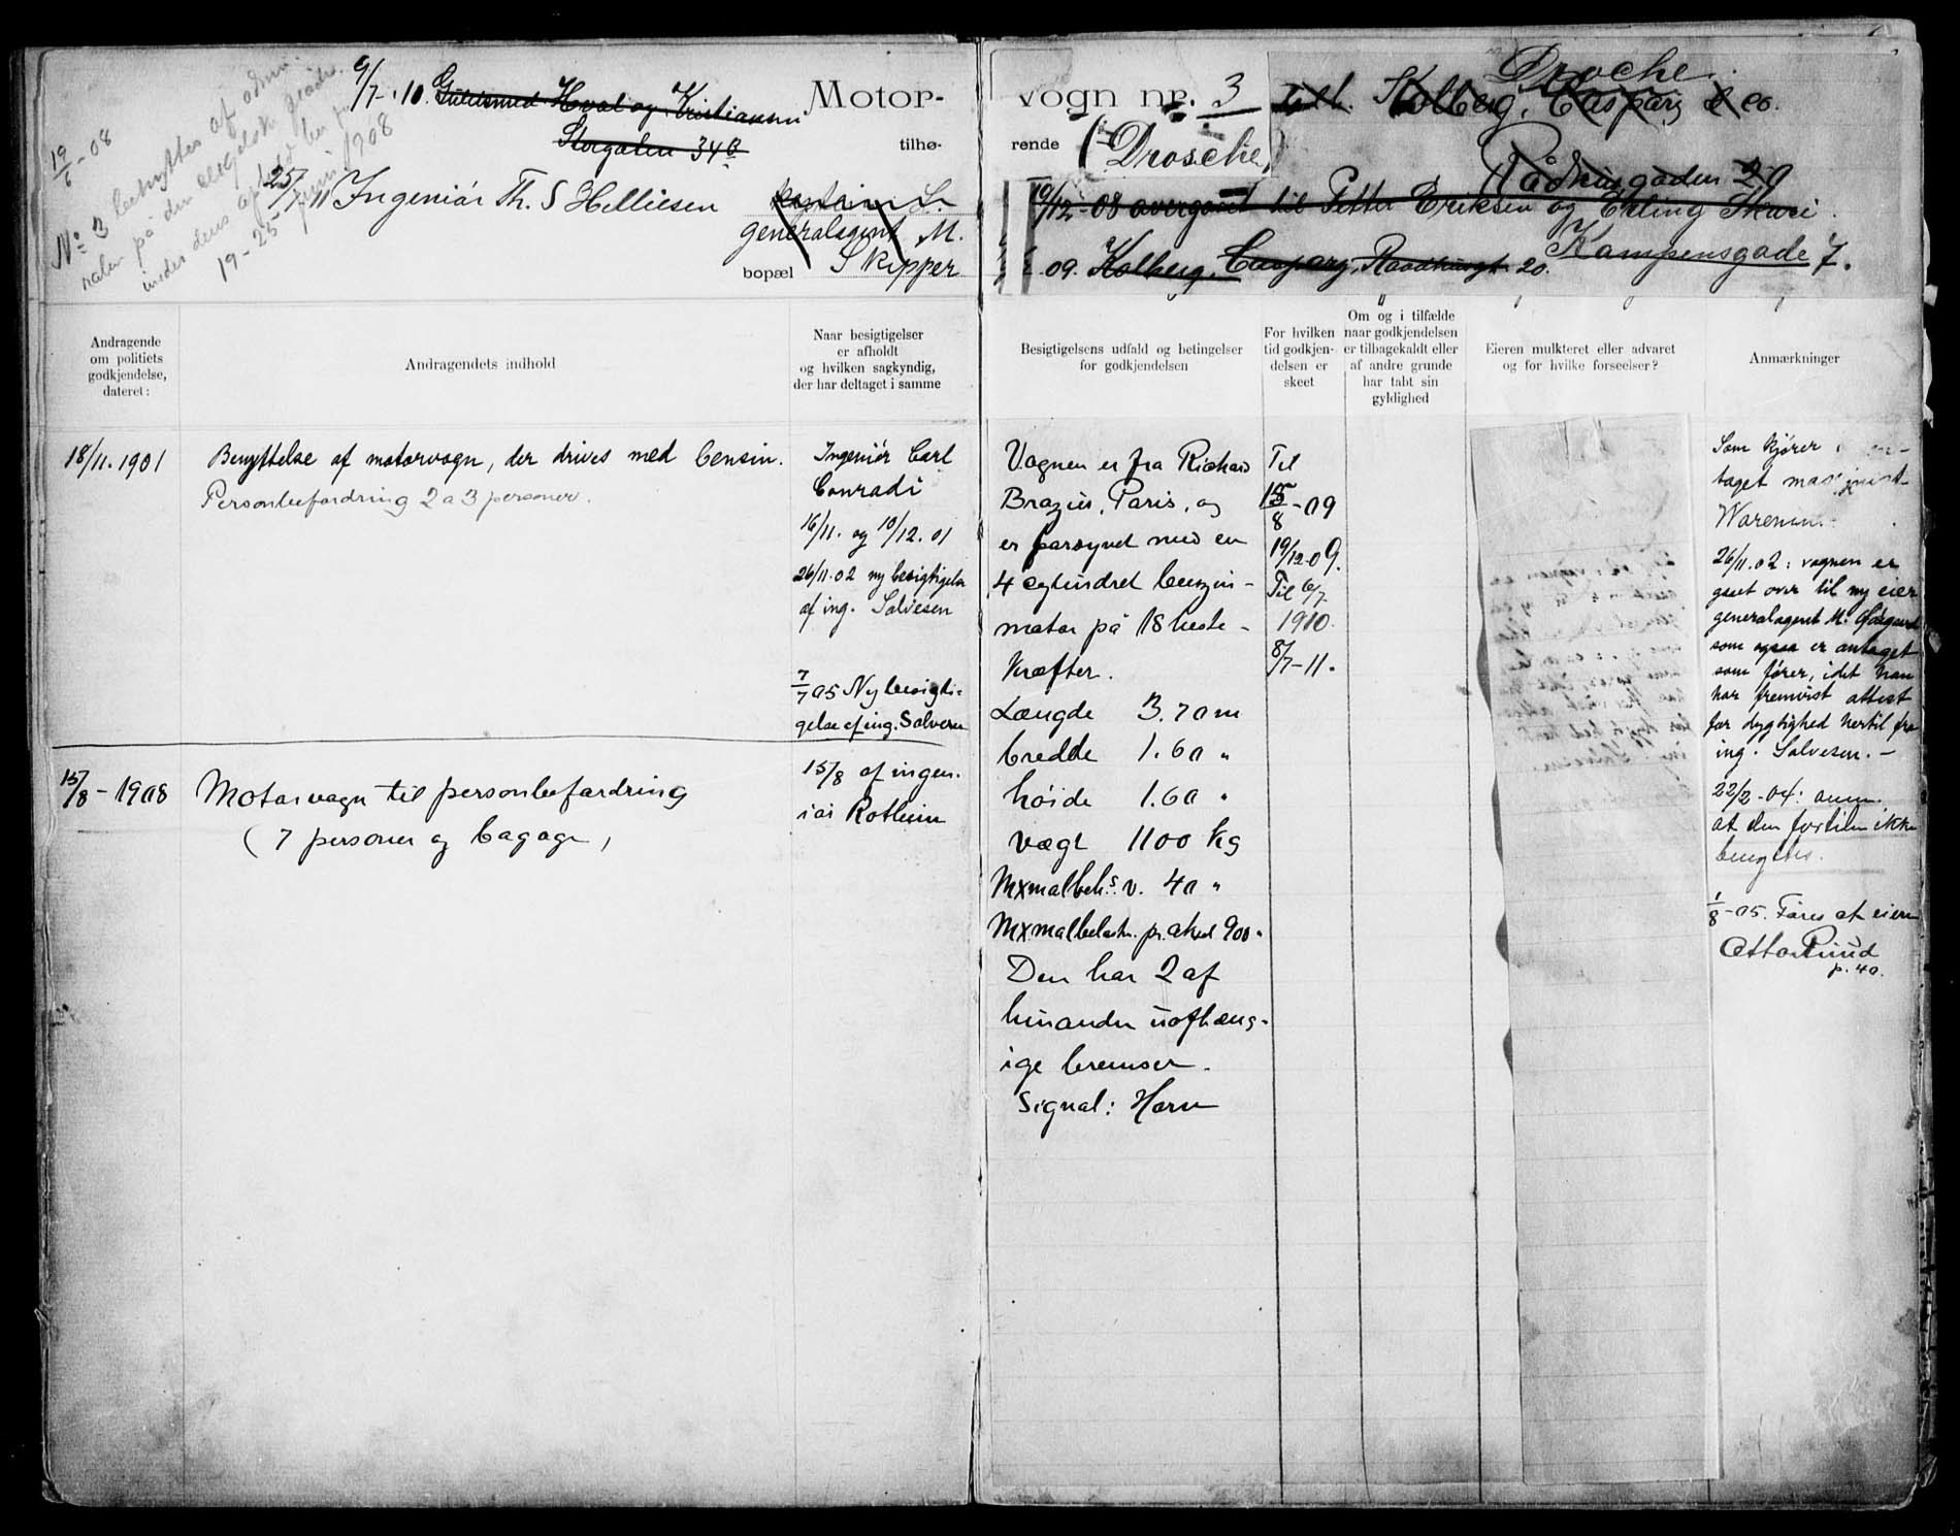 19/6-08
No 3 benyttes af admi-
ralen på den engelske
indes dens ophold her fra
19-25 juni 1908
9/7-10. Guldsmed Hval og Kristiansen
Storgaten 34B
25/7 11 Ingeniør Th. S Helliesen
Motor-
tilhø-
generalagent M.
bopæl Skipper
vogn nr. 3
rende (Drosche)
Droche.
Kolberg, Caspary & co.
Rådhusgaden 20
19/12-08 overgaaet til Petter Eriksen og Erling Skari
Kampensgade 7.
09. Kolberg, Caspary, Raadhusgt 20.
Andragende
om politiets
godkjendelse,
dateret:
Andragendets indhold
Naar besigtigelser
er afholdt
og hvilken sagkyndig,
der har deltaget i samme
Besigtigelsens udfald og betingelser
for godkjendelsen
For hvilken
tid godkjen-
delsen er
skeet
Om og i tilfælde
naar godkjendelsen
er tilbagekaldt eller
af andre grunde
har tabt sin
gyldighed
Eieren mulkteret eller advaret
og for hvilke forseelser?
Anmærkninger
18/11.1901
Benyttelse af motorvogn, der drives med bensin.
Personbefordring 2 a 3 personer.
Ingeniør Carl
Conradi
16/11. og 10/12.01
26/11.02 ny besigtigelse
af ing. Salvesen
7/7 05 Ny besigti-
gelse af ing. Salvesen
15/8-1908
Motorvogn til personbefordring
(7 personer og bagage)
15/8 af ingen-
iør Rotheim
Vognen er fra Richard
Brazier, Paris, og
er forsynet med en
4 cylindret benzin-
motor på 18 heste-
kræfter.
Længde 3.70 m
bredde 1.60 "
høide 1.60 "
vægt 1100 kg
Mxmalbel.s v. 40 "
Mxmalbelastn. pr. aksel 900 "
Den har 2 af
hinanden uafhæng-
ige bremser.
Signal: Horn
Til
15/8-09
19/12.09.
Til 6/7
1910.
8/7-11.
Som kjører er an-
taget maskinist
26/11.02: vognen er
gaaet over til ny eier
generalagent M.
som ogsaa er antaget
som fører, idet han
har fremvist attest
for dygtighed hertil fra
ing. Salvesen. -
22/2-04: anm.
at den fortiden ikke
benyttes.
1/8-05. Føres af eieren
Otto Ruud
p. 40.